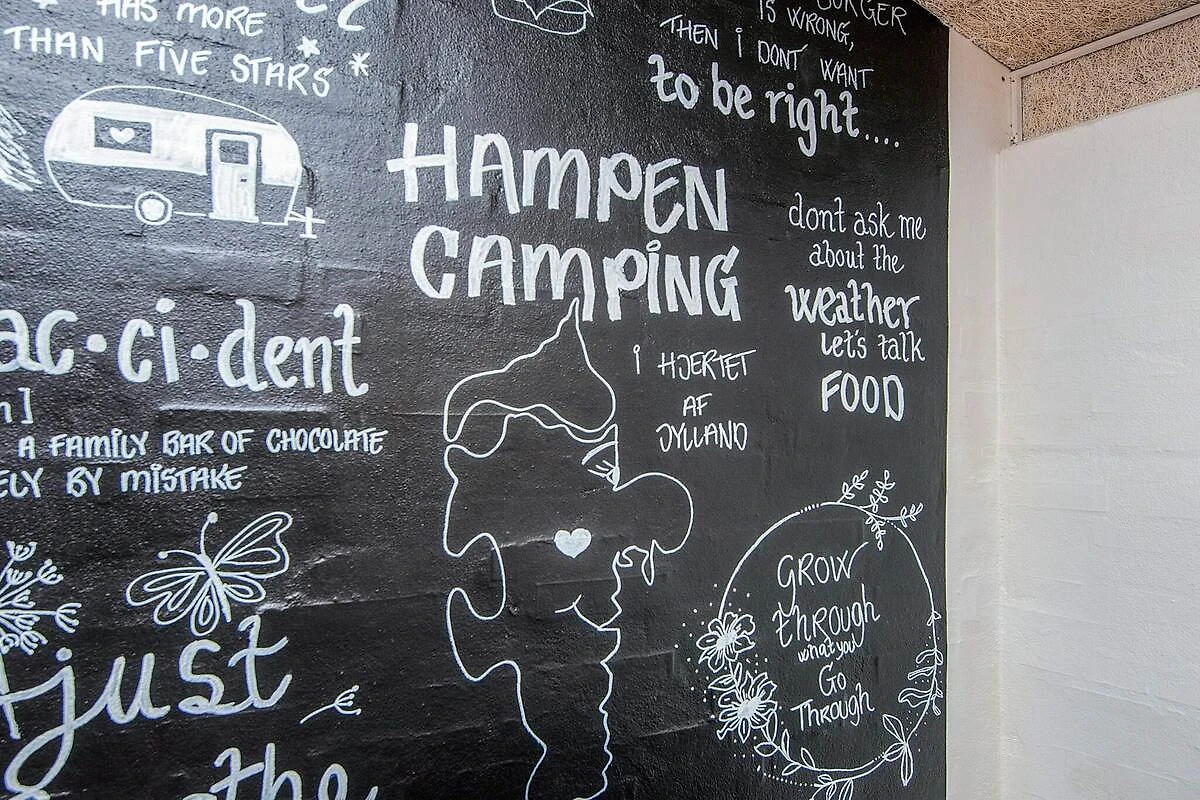 HAS MORE
THAN FIVE STARS
BURGER
IS WRONG,
THEN i DONT WANT
to be right....
HAMPEN
CAMPING
i HJERTET
AF
JYLLAND
dont ask me
about the
weather
let's talk
FOOD
ac·ci·dent
n]
A FAMILY BAR OF CHOCOLATE
ELY BY MISTAKE
just
the
GROW
through
what you
Go
Through